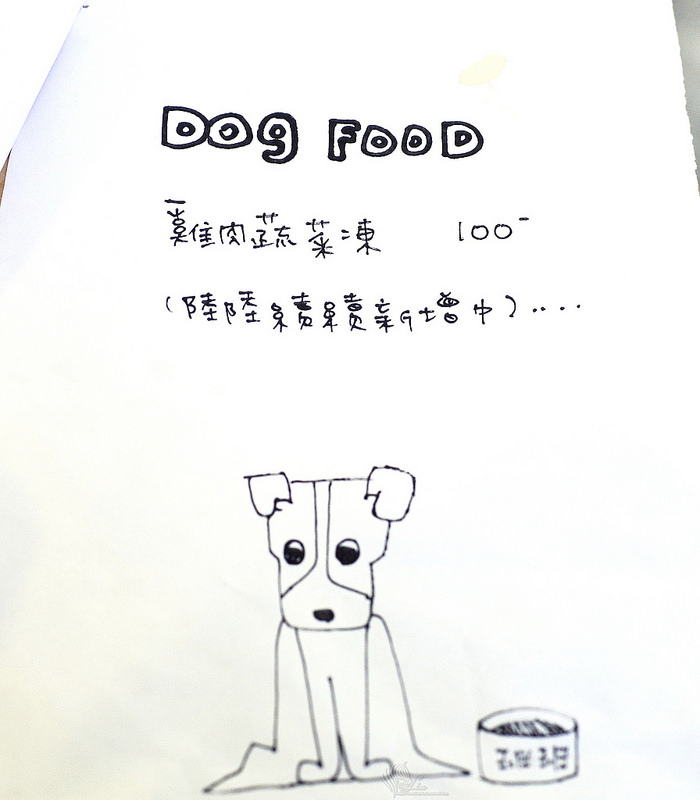 DOG FOOD
雞肉蔬菜凍 100-
(陸陸續續新增中)....